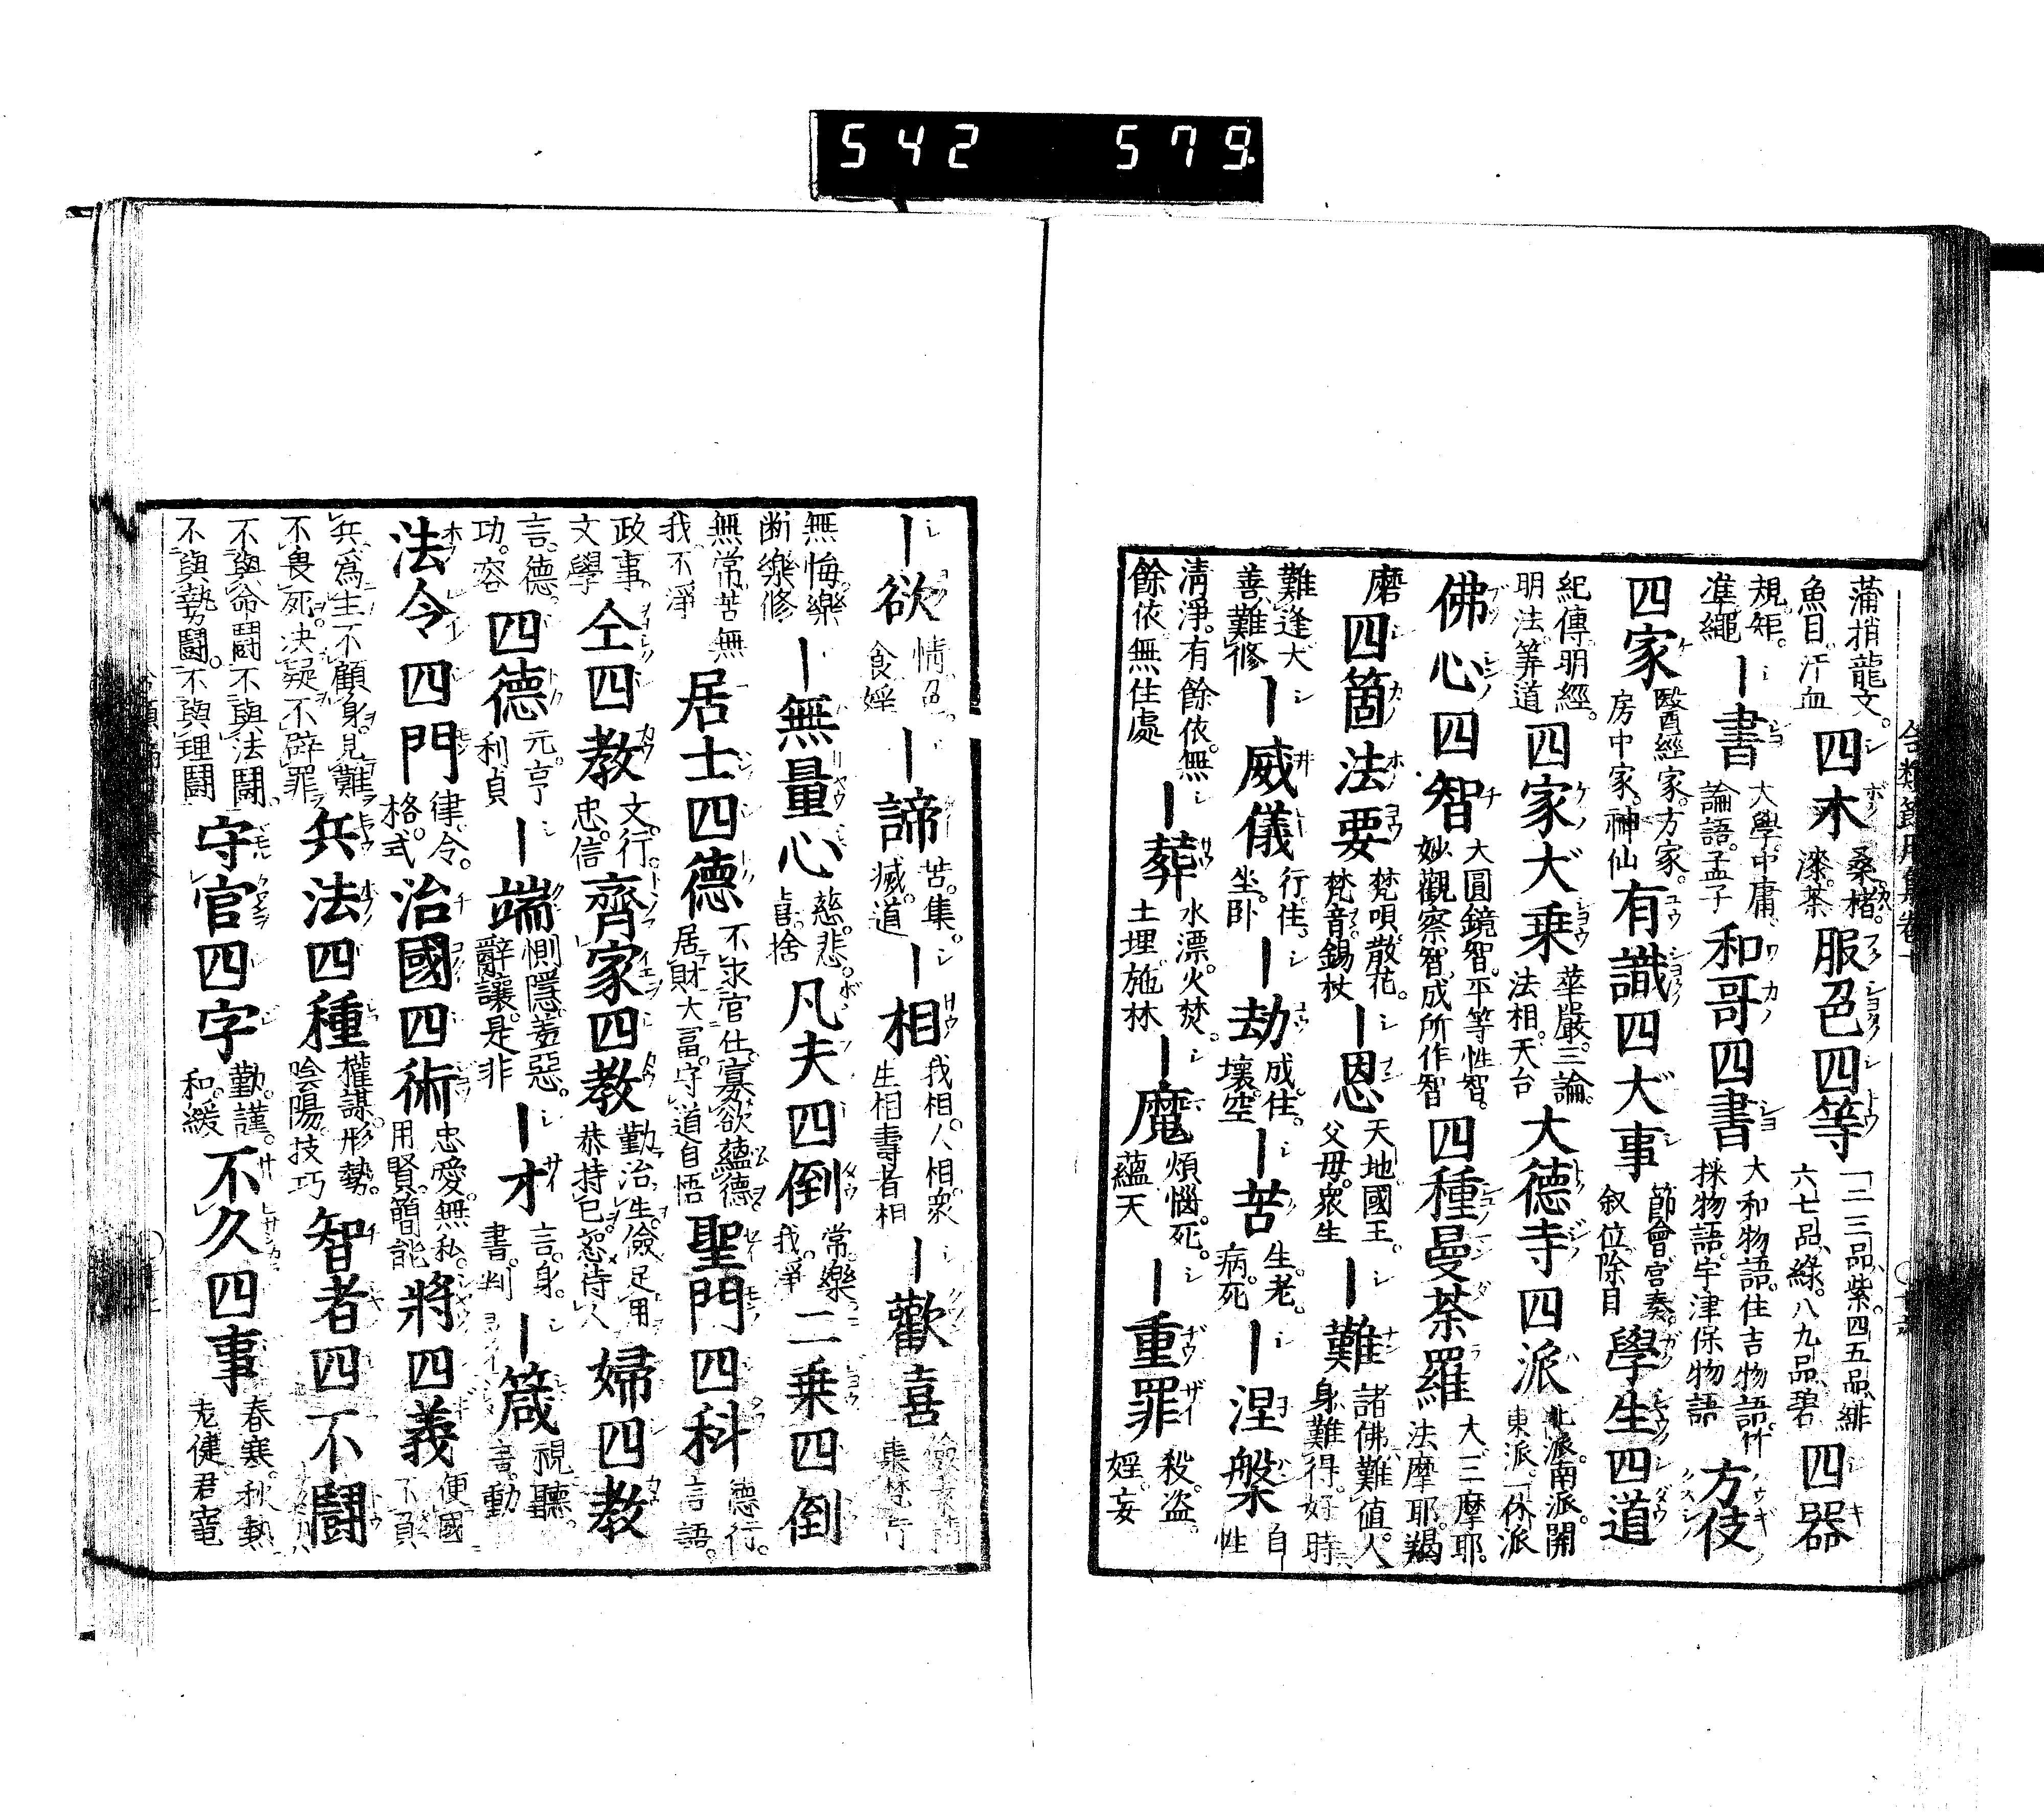 542 579
合類節用集卷十
蒲捎龍文。魚目汗血 四木 桑楮。漆茶 服色四等 一二三品、紫。四五品、緋六七品、緑。八九品、碧 四器
規矩。準繩 ｜書 大學。中庸論語。孟子 和哥四書 大和物語。住吉物語。竹採物語。宇津保物語 方伎
四家 醫經家。方家。房中家。神仙 有識四大事 節會。官奏。叙位除目 學生四道
紀傳明經。明法筭道 四家大乗 華嚴。三論。法相。天台 大德寺四派 北派。南派。開東派。一休派
佛心四智 大圓鏡智。平等性智。妙觀察智。成所作智 四種曼荼羅 大三摩耶。法摩耶。羯
磨 四箇法要 梵唄散花。梵音錫杖 ｜恩 天地國王。父母。衆生 ｜難 諸佛難値。人身難得。好時
難逢大善難修 ｜威儀 行住。坐。卧 ｜劫 成。住。壞。空 ｜苦 生。老。病。死 ｜涅槃 自性
清淨。有餘依。無餘依無住處 ｜葬 水漂。火焚。土埋施林 ｜魔 煩惱。死。蘊天 ｜重罪 殺。盗。婬。妄
｜欲 情色。食婬 ｜諦 苦。集。滅。道 ｜相 我相。人相。衆生相壽者相 ｜歡喜
無悔樂。断樂修 ｜無量心 慈。悲。喜。捨 凡夫四倒 常。樂我。淨 二乗四倒
無常。苦無我不淨 居士四德 不求官仕。寡欲蘊德。居財大冨。守道自悟 聖門四科 德行。言語。
政事。文學 仝四教 文。行。忠。信 齊家四教 勤治生。儉足用恭持已。恕待人 婦四教
言。德。功。容 四德 元。亨利貞 ｜端 惻隱。羞惡。辭讓。是非 ｜才 言。身。書。判 ｜箴 視聽。言。動
法令四門 律令。格。式 治國四術 忠愛。無私。用賢。簡能 將四義 便國不負
兵爲生不顧身。見難不畏死决疑不辟罪 兵法四種 權謀。形勢。陰陽。技巧 智者四不鬪
不與命鬪不與法鬪。不與勢鬪。不與理鬪 守官四字 勤。謹。和。緩 不久四事 春寒。秋熱老健。君寵